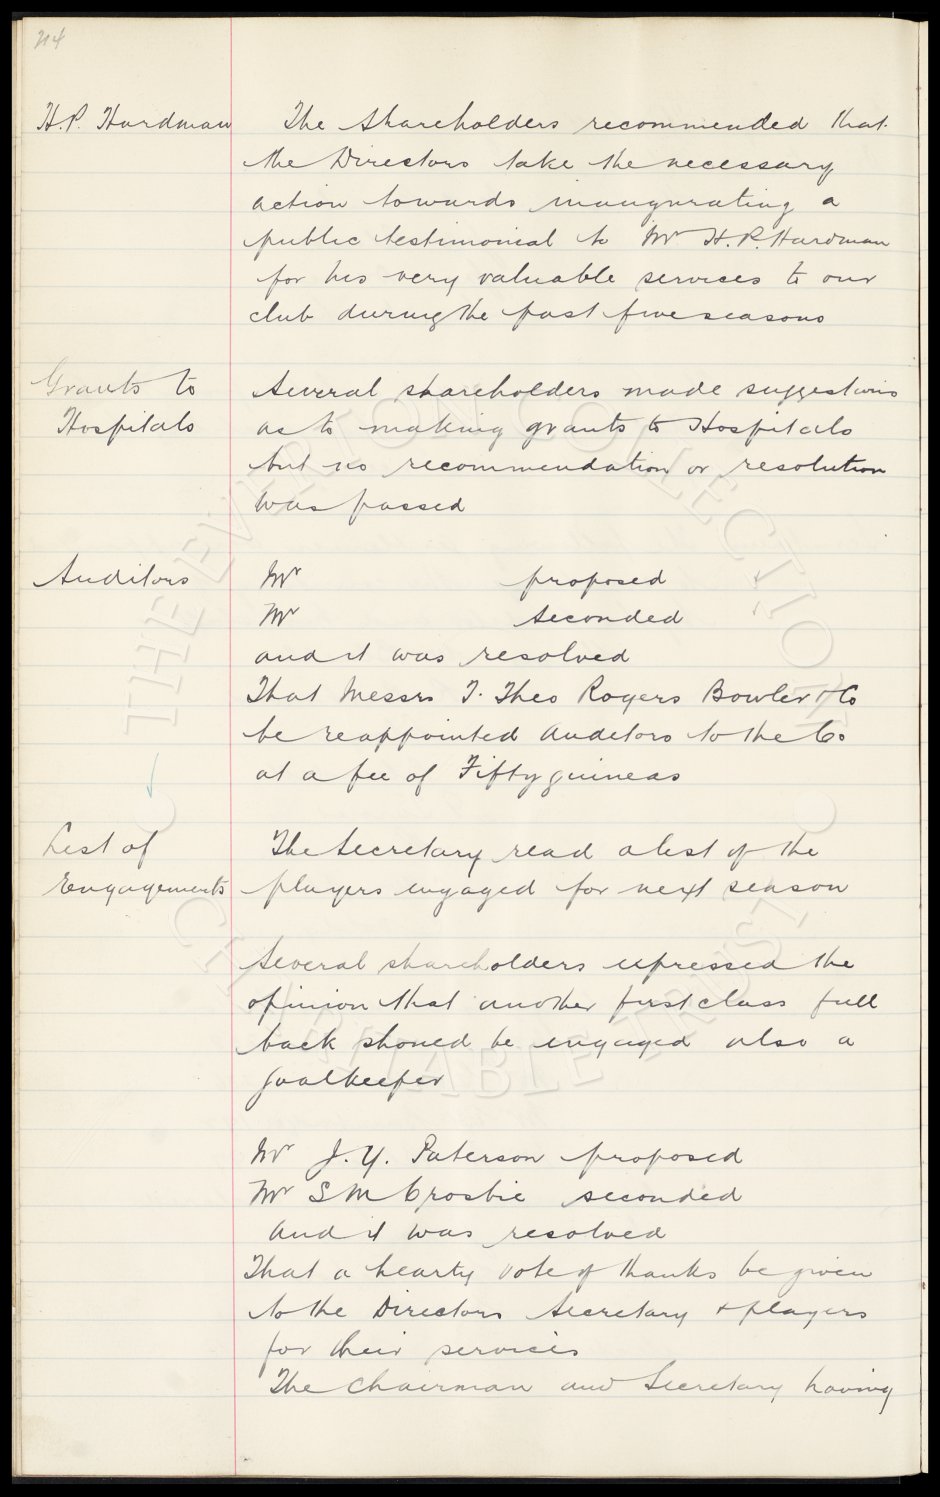 214
H.P. Hardman
The Shareholders recommended that
the Directors take the necessary
action towards inaugurating a
public testimonial to Mr H.P. Hardman
for his very valuable services to our
club during the past five seasons
Grants to
Hospitals
Several shareholders made suggestions
as to making grants to Hospitals
but no recommendation or resolution
was passed
Auditors
Mr proposed
Mr seconded
and it was resolved
That Messrs T. Theo Rogers Bowler & Co
be reappointed Auditors to the Co
at a fee of Fifty guineas
List of
Engagements
The Secretary read a list of the
players engaged for next season
Several shareholders expressed the
opinion that another first class full
back should be engaged also a
goalkeeper
Mr J.Y. Paterson proposed
Mr S M Crosbie seconded
and it was resolved
That a hearty vote of thanks be given
to the Directors Secretary & players
for their services
The Chairman and Secretary having
THE EVERTON COLLECTION
CHARITABLE TRUST